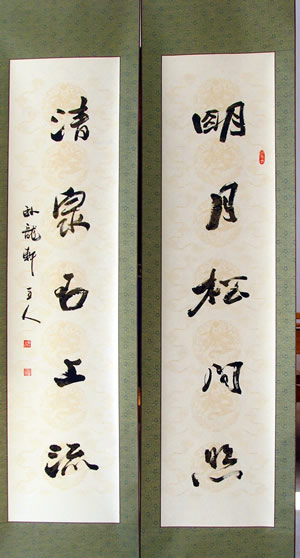 明月松间照
清泉石上流
卧龙轩 百人